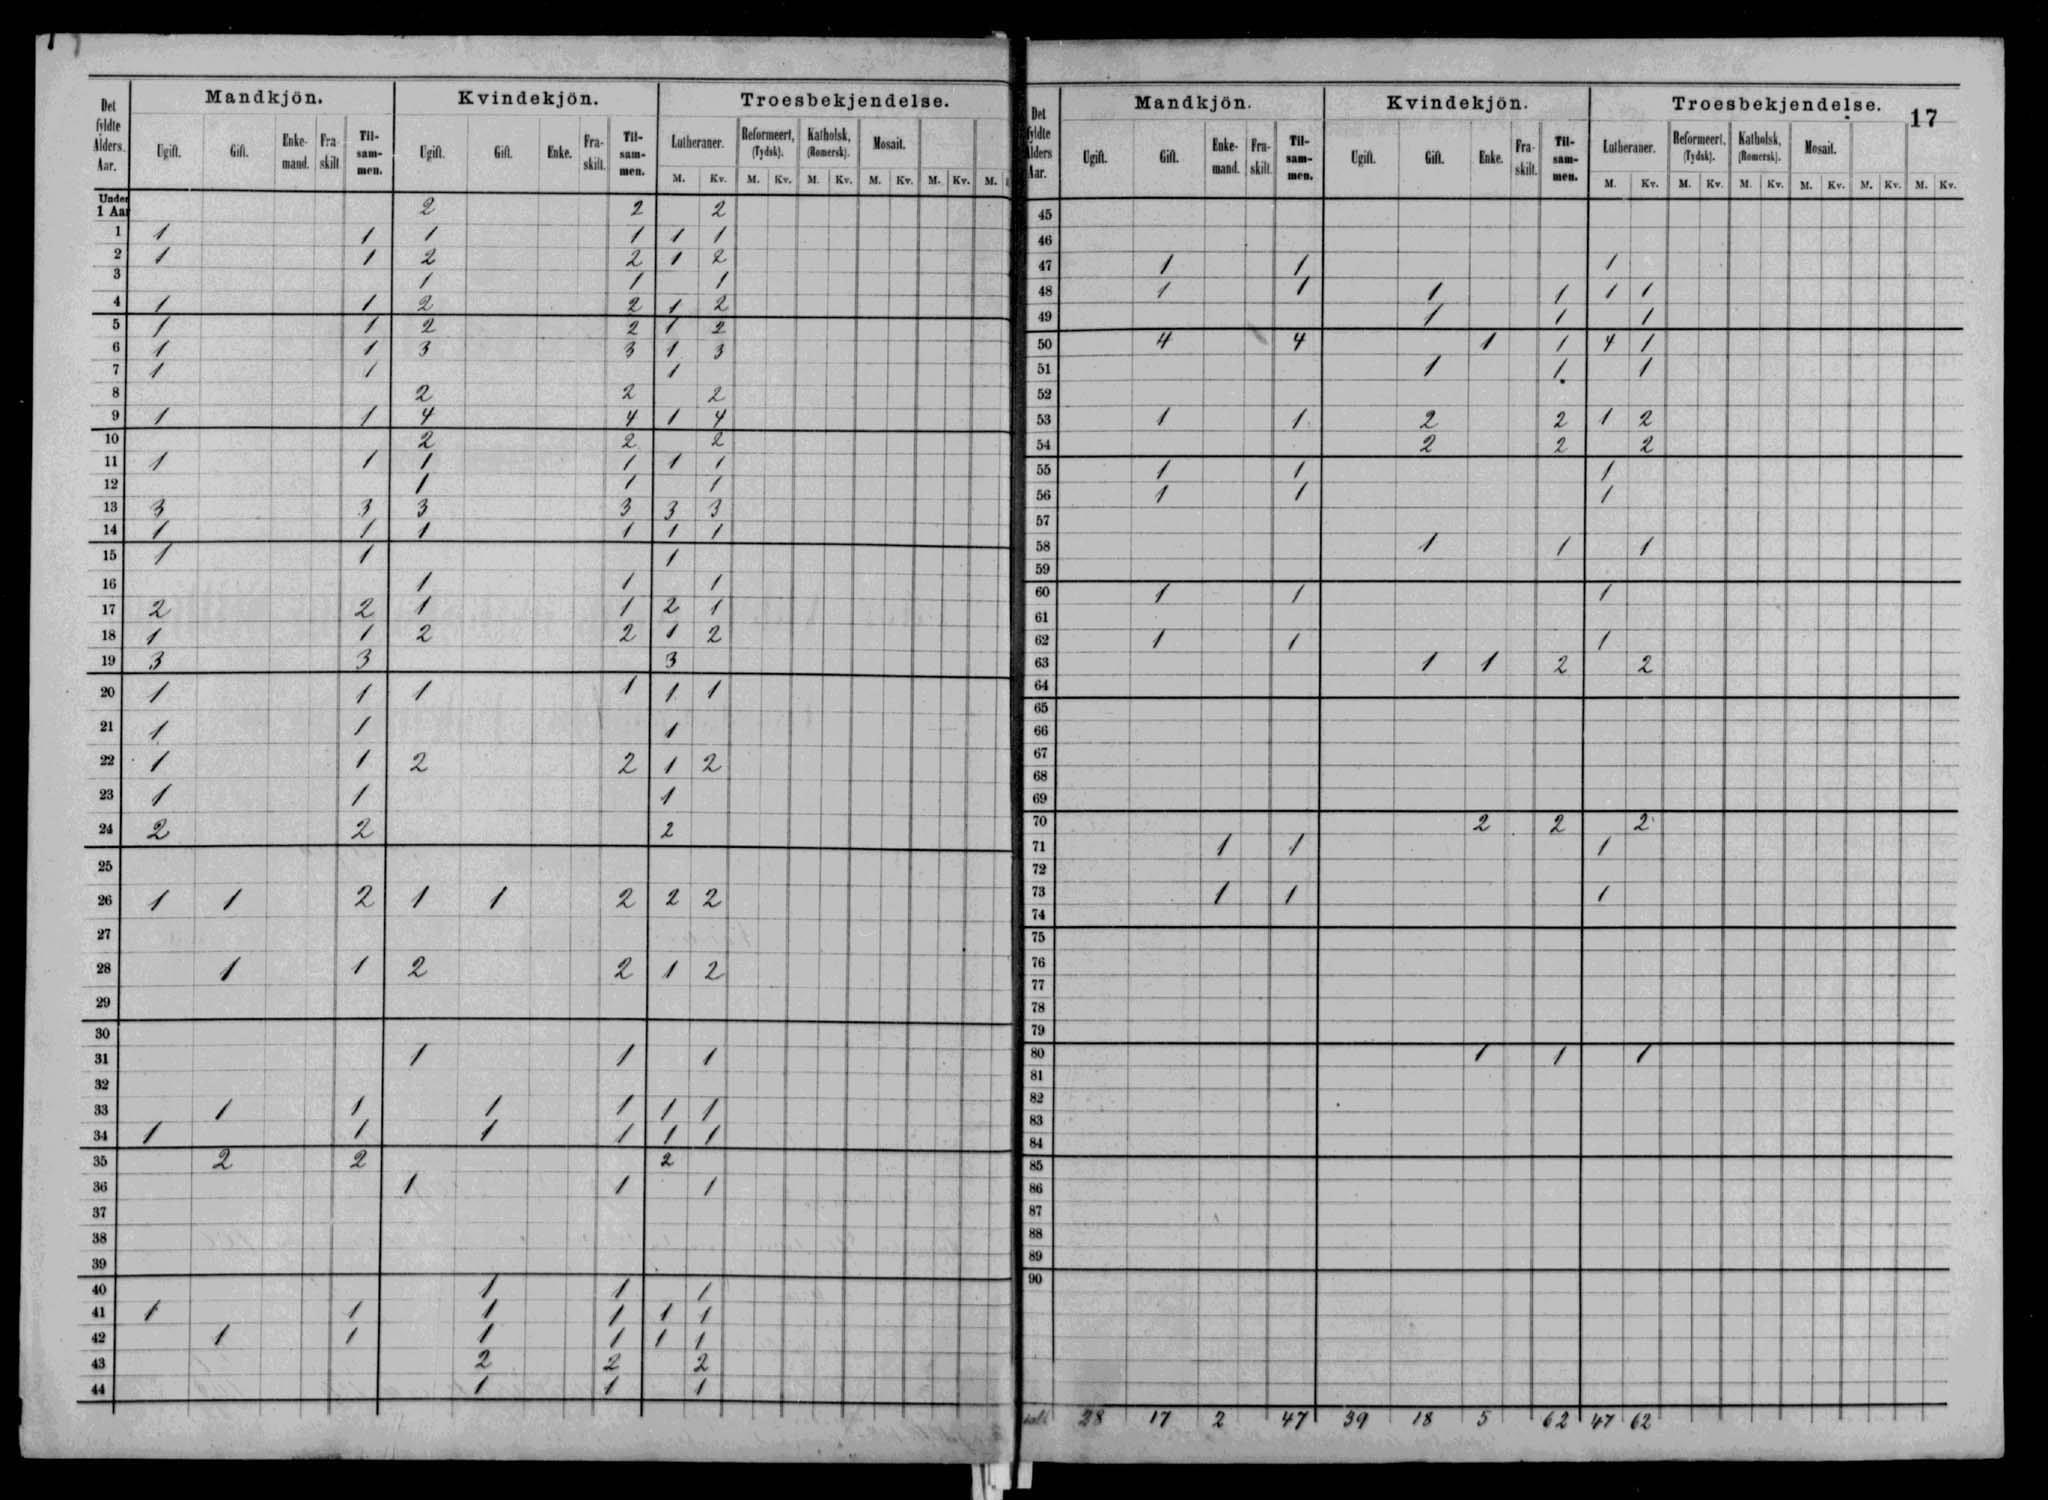 Det fyldte Alders Aar. Mandkjön. Kvindekjön. Troesbekjendelse.
Ugift. Gift. Enke-mand. Fra-skilt. Til-sam-men. Ugift. Gift. Enke. Fra-skilt. Til-sam-men. Lutheraner. Reformeert, (Tydsk). Katholsk, (Romersk). Mosait.
M. Kv. M. Kv. M. Kv. M. Kv. M. Kv. M.
Under 1 Aar 2 2 2
1 1 1 1 1 1 1
2 1 1 2 2 1 2
3 1 1 1
4 1 1 2 2 1 2
5 1 1 2 2 1 2
6 1 1 3 3 1 3
7 1 1 1
8 2 2 2
9 1 1 4 4 1 4
10 2 2 2
11 1 1 1 1 1 1
12 1 1 1
13 3 3 3 3 3 3
14 1 1 1 1 1 1
15 1 1 1
16 1 1 1
17 2 2 1 1 2 1
18 1 1 2 2 1 2
19 3 3 3
20 1 1 1 1 1 1
21 1 1 1
22 1 1 2 2 1 2
23 1 1 1
24 2 2 2
25
26 1 1 2 1 1 2 2 2
27
28 1 1 2 2 1 2
29
30
31 1 1 1
32
33 1 1 1 1 1 1
34 1 1 1 1 1 1
35 2 2 2
36 1 1 1
37
38
39
40 1 1 1
41 1 1 1 1 1 1
42 1 1 1 1 1 1
43 2 2 2
44 1 1 1
17
Det fyldte Alders Aar. Mandkjön. Kvindekjön. Troesbekjendelse.
Ugift. Gift. Enke-mand. Fra-skilt. Til-sam-men. Ugift. Gift. Enke. Fra-skilt. Til-sam-men. Lutheraner. Reformeert, (Tydsk). Katholsk, (Romersk). Mosait.
M. Kv. M. Kv. M. Kv. M. Kv. M. Kv. M. Kv.
45
46
47 1 1 1
48 1 1 1 1 1 1
49 1 1 1
50 4 4 1 1 4 1
51 1 1 1
52
53 1 1 2 2 1 2
54 2 2 2
55 1 1 1
56 1 1 1
57
58 1 1 1
59
60 1 1 1
61
62 1 1 1
63 1 1 2 2
64
65
66
67
68
69
70 2 2 2
71 1 1 1
72
73 1 1 1
74
75
76
77
78
79
80 1 1 1
81
82
83
84
85
86
87
88
89
90
28 17 2 47 39 18 5 62 47 62